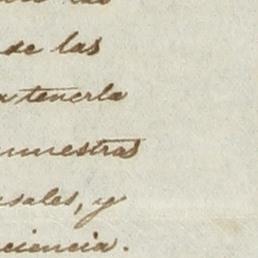 de las
a tenerla
muestras
sales, y
ciencia.